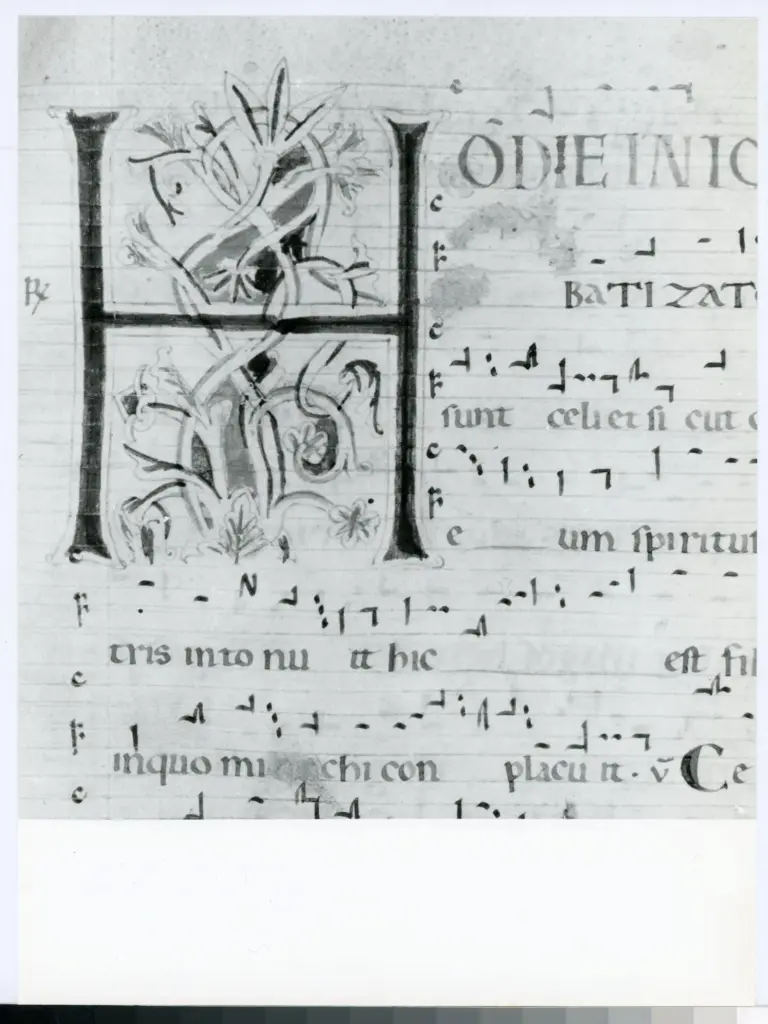 HODIE IN IO
℟ BATIZATO
sunt celi et si cut c
e um spiritus
tris into nu it hic est fil
inquo mi chi con placu it · v̄ Ce